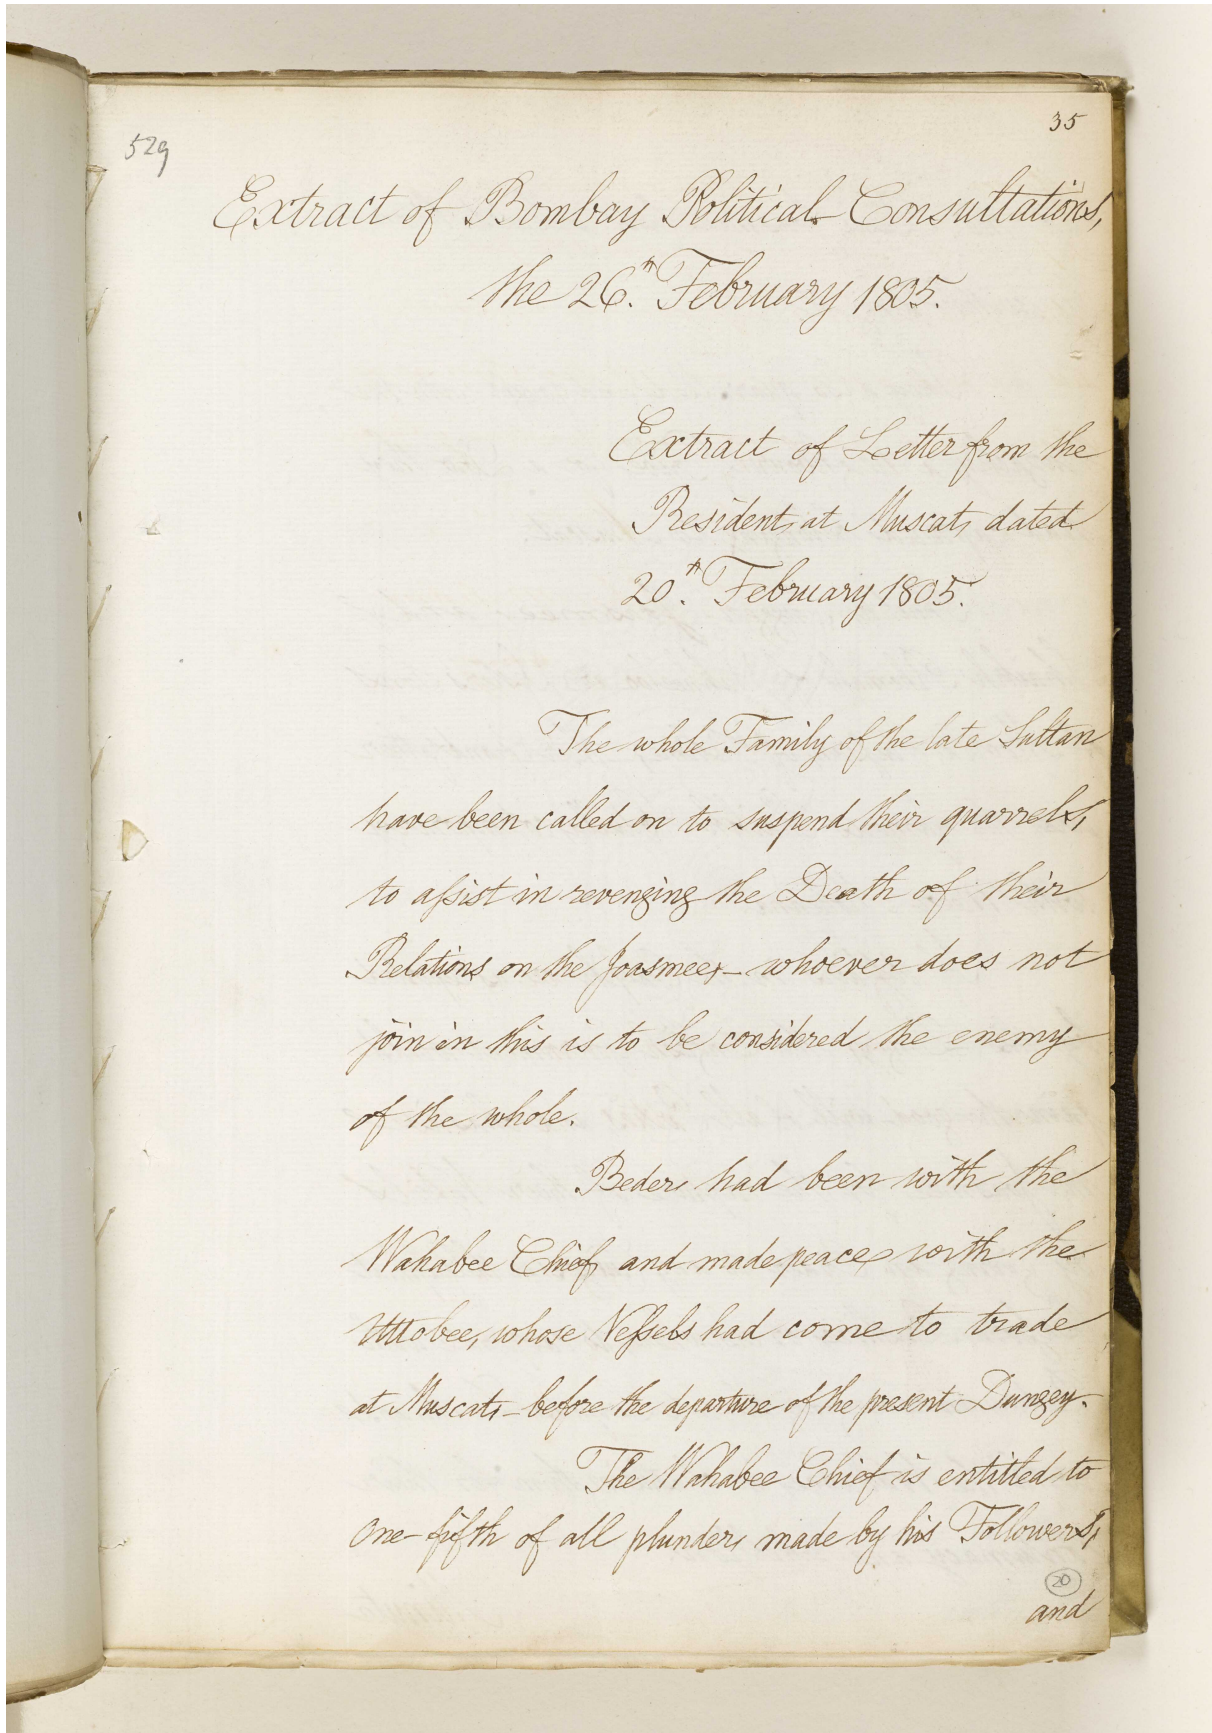 35
529
Extract of Bombay Political Consultations,
the 26.th February 1805.
Extract of Letter from the
Resident at Muscat, dated
20th. February 1805.
The whole Family of the late Sultan
have been called on to suspend their quarrels,
to assist in revenging the Death of their
Relations on the Joasmee, – whoever does not
join in this is to be considered the enemy
of the whole.
Beder had been with the
Wahabee Chief, and made peace with the
Uttobee, whose Vessels had come to trade
at Muscat, – before the departure of the present Dungey.
The Wahabee Chief is entitled to
one-fifth of all plunder, made by his Followers,
20
and